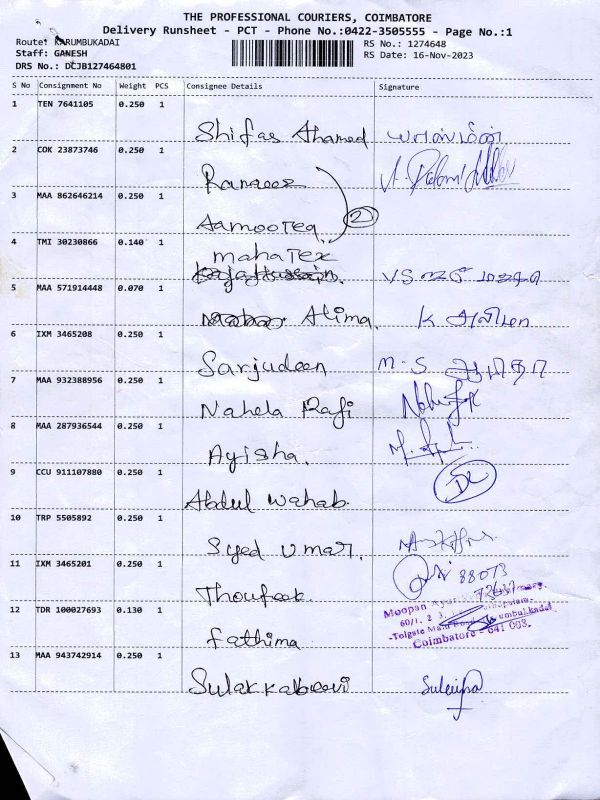 THE PROFESSIONAL COURIERS, COIMBATORE
Delivery Runsheet - PCT - Phone No.:0422-3505555 - Page No.:1
Route: KARUMBUKADAI
Staff: GANESH
DRS No.: DCJB127464801
RS No.: 1274648
RS Date: 16-Nov-2023
S No Consignment No Weight PCS Consignee Details Signature
1 TEN 7641105 0.250 1
Shifas Ahamed யாஸ்மின்
2 COK 23873746 0.250 1
Rameez
3 MAA 862646214 0.250 1
2
4 TMI 30230866 0.140 1
mahatex
5 MAA 571914448 0.070 1
Alima.
6 IXM 3465208 0.250 1
Sarjudeen M.S
7 MAA 932388956 0.250 1
Nahela Rafi
8 MAA 287936544 0.250 1
Ayisha.
9 CCU 911107880 0.250 1
Abdul wahab DC
10 TRP 5505892 0.250 1
Syed Umar.
11 IXM 3465201 0.250 1
88073
Thoufeek
12 TDR 100027693 0.130 1
Moopan
60/1, 2
-Tolgate Main
Coimbatore - 641 008.
Fathima
13 MAA 943742914 0.250 1
Sulakkabeevi